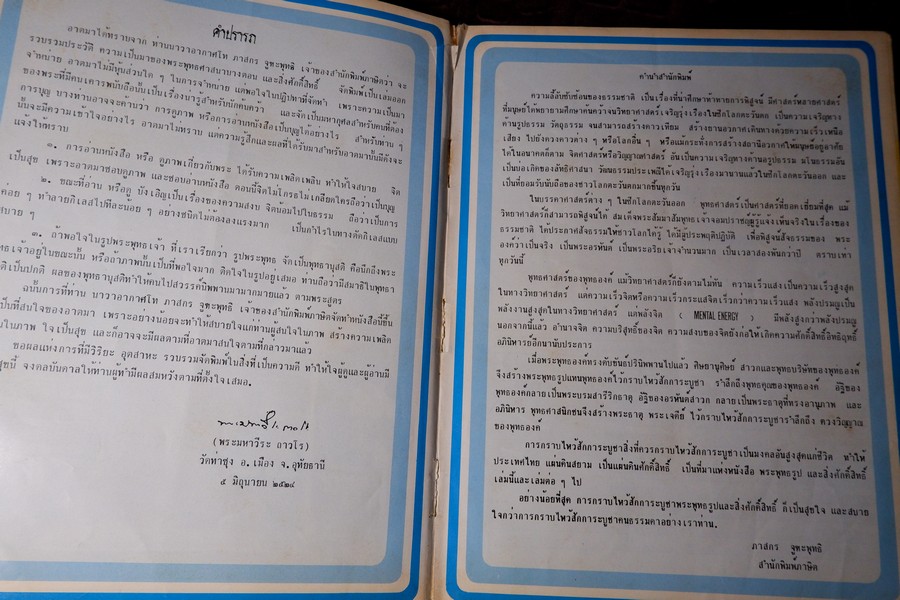 คำปรารภ
อาตมาได้ทราบจาก ท่านนาวาอากาศโท ภาสกร จูฑะพุทธิ เจ้าของสำนักพิมพ์ภาษิตว่า จะ
รวบรวมประวัติ ความเป็นมาของพระพุทธศาสนาบางตอน และสิ่งศักดิ์สิทธิ์ จัดพิมพ์เป็นเล่มออก
จำหน่าย อาตมาไม่มีหุ้นส่วนใด ๆ ในการจำหน่าย แต่พอใจในปฏิปทาที่จัดทำ เพราะความเป็นมา
ของพระที่มีคนเคารพนับถือนั้นเป็นเรื่องน่ารู้สำหรับนักค้นคว้า และจัดเป็นมหากุศลสำหรับคนที่ต้อง
การบุญ บางท่านอาจจะค้านว่า การดูภาพ หรือการอ่านหนังสือเป็นบุญได้อย่างไร สำหรับท่าน ๆ
นั้นจะมีความเข้าใจอย่างไร อาตมาไม่ทราบ แต่ความรู้สึกและผลที่ได้รับมาสำหรับอาตมานั้นมีดังจะ
แจ้งให้ทราบ
๑. การอ่านหนังสือ หรือ ดูภาพเกี่ยวกับพระ ได้รับความเพลิดเพลิน ทำให้ใจสบาย จิต
เป็นสุข เพราะอาตมาชอบดูภาพ และชอบอ่านหนังสือ ตอนนี้จิตไม่โกรธไม่เกลียดใครถือว่าเป็นบุญ
๒. ขณะที่อ่าน หรือดู บังเอิญเป็นเรื่องของความสงบ จิตน้อมไปในธรรม ถือว่าเป็นการ
ค่อย ๆ ทำลายกิเลสไปทีละน้อย ๆ อย่างชนิดไม่ต้องลงแรงมาก เป็นกำไรในทางตัดกิเลสแบบ
สบาย ๆ
๓. ถ้าพอใจในรูปพระพุทธเจ้า ที่เราเรียกว่า รูปพระพุทธ จัดเป็นพุทธานุสติ คือนึกถึงพระ
พุทธเจ้าอยู่ในขณะนั้น หรือถ้าภาพนั้นเป็นที่พอใจมาก ติดใจในรูปอยู่เสมอ ท่านถือว่ามีสมาธิในพุทธา
ติเป็นปกติ ผลของพุทธานุสติทำให้คนไปสวรรค์นิพพานมามากมายแล้ว ตามพระสูตร
ฉนั้นการที่ท่าน นาวาอากาศโท ภาสกร จูฑะพุทธิ เจ้าของสำนักพิมพ์ภาษิตจัดทำหนังสือนี้ขึ้น
เป็นที่สบใจของอาตมา เพราะอย่างน้อยจะทำให้สบายใจแก่ท่านผู้สนใจในภาพ สร้างความเพลิด
ในภาพ ใจเป็นสุข และก็อาจจะมีผลตามที่อาตมาสนใจตามที่กล่าวมาแล้ว
ขอผลแห่งการที่มีวิริยะ อุตสาหะ รวบรวมจัดพิมพ์ในสิ่งที่เป็นความดี ทำให้ใจผู้ดูและผู้อ่านมี
สุขนี้ จงดลบันดาลให้ท่านผู้ทำมีผลสมหวังตามที่ตั้งใจเสมอ.
(พระมหาวีระ ถาวโร)
วัดท่าซุง อ. เมือง จ. อุทัยธานี
๕ มิถุนายน ๒๕๒๔
คำนำสำนักพิมพ์
ความลี้ลับซับซ้อนของธรรมชาติ เป็นเรื่องที่น่าศึกษาท้าทายการพิสูจน์ มีศาสตร์หลายศาสตร์
ที่มนุษย์ได้พยายามศึกษาค้นคว้าจนวิทยาศาสตร์ เจริญรุ่งเรืองในซีกโลกตะวันตก เป็นความเจริญทาง
ด้านรูปธรรม วัตถุธรรม จนสามารถสร้างดาวเทียม สร้างยานอวกาศเดินทางด้วยความเร็วเหนือ
เสียง ไปยังดวงดาวต่าง ๆ หรือโลกอื่น ๆ หรือแม้กระทั่งการสร้างสถานีอวกาศให้มนุษย์อยู่อาศัย
ได้ในอนาคตก็ตาม จิตศาสตร์หรือวิญญาณศาสตร์ อันเป็นความเจริญทางด้านอรูปธรรม มโนธรรมอัน
เป็นบ่อเกิดของลัทธิศาสนา วัฒนธรรมประเพณีได้เจริญรุ่งเรืองมานานแล้วในซีกโลกตะวันออก และ
เป็นที่ยอมรับนับถือของชาวโลกตะวันตกมากขึ้นทุกวัน
ในบรรดาศาสตร์ต่าง ๆ ในซีกโลกตะวันออก พุทธศาสตร์เป็นศาสตร์ที่ยอดเยี่ยมที่สุด แม้
วิทยาศาสตร์ก็สามารถพิสูจน์ได้ สมเด็จพระสัมมาสัมพุทธเจ้าจอมปราชญ์ผู้รู้แจ้งเห็นจริงในเรื่องของ
ธรรมชาติ ได้ประกาศสัจธรรมให้ชาวโลกได้รู้ ได้มีผู้ประพฤติปฏิบัติ เพื่อพิสูจน์สัจธรรมของ พระ
องค์ว่าเป็นจริง เป็นพระอรหันต์ เป็นพระอริยเจ้าจำนวนมาก เป็นเวลาสองพันกว่าปี ตราบเท่า
ทุกวันนี้
พุทธศาสตร์ของพุทธองค์ แม้วิทยาศาสตร์ก็ยังตามไม่ทัน ความเร็วแสงเป็นความเร็วสูงสุด
ในทางวิทยาศาสตร์ แต่ความเร็วจิตหรือความเร็วกระแสจิตเร็วกว่าความเร็วแสง พลังปรมณูเป็น
พลังงานสูงสุดในทางวิทยาศาสตร์ แต่พลังจิต ( MENTAL ENERGY ) มีพลังสูงกว่าพลังปรมณู
นอกจากนี้แล้ว อำนาจจิต ความบริสุทธิ์ของจิต ความสงบของจิตยังก่อให้เกิดความศักดิ์สิทธิ์อิทธิฤทธิ์
อภินิหารอีกนานัปประการ
เมื่อพระพุทธองค์ทรงดับขันธ์ปรินิพพานไปแล้ว ศิษยานุศิษย์ สาวกและพุทธบริษัทของพุทธองค์
จึงสร้างพระพุทธรูปแทนพุทธองค์ไว้กราบไหว้สักการะบูชา รำลึกถึงพุทธคุณของพุทธองค์ อัฐิของ
พุทธองค์กลายเป็นพระบรมสารีริกธาตุ อัฐิของอรหันต์สาวก กลายเป็นพระธาตุที่ทรงอานุภาพ และ
อภินิหาร พุทธศาสนิกชนจึงสร้างพระธาตุ พระเจดีย์ ไว้กราบไหว้สักการะบูชารำลึกถึง ดวงวิญญาณ
ของพุทธองค์
การกราบไหว้สักการะบูชาสิ่งที่ควรกราบไหว้สักการะบูชาเป็นมงคลอันสูงสุดแก่ชีวิต ทำให้
ประเทศไทย แผ่นดินสยาม เป็นแผ่นดินศักดิ์สิทธิ์ เป็นที่มาแห่งหนังสือ พระพุทธรูป และสิ่งศักดิ์สิทธิ์
เล่มนี้และเล่มต่อ ๆ ไป
อย่างน้อยที่สุด การกราบไหว้สักการะบูชาพระพุทธรูปและสิ่งศักดิ์สิทธิ์ ก็เป็นสุขใจ และสบาย
ใจกว่าการกราบไหว้สักการะบูชาคนธรรมดาอย่างเราท่าน.
ภาสกร จูฑะพุทธิ
สำนักพิมพ์ภาษิต